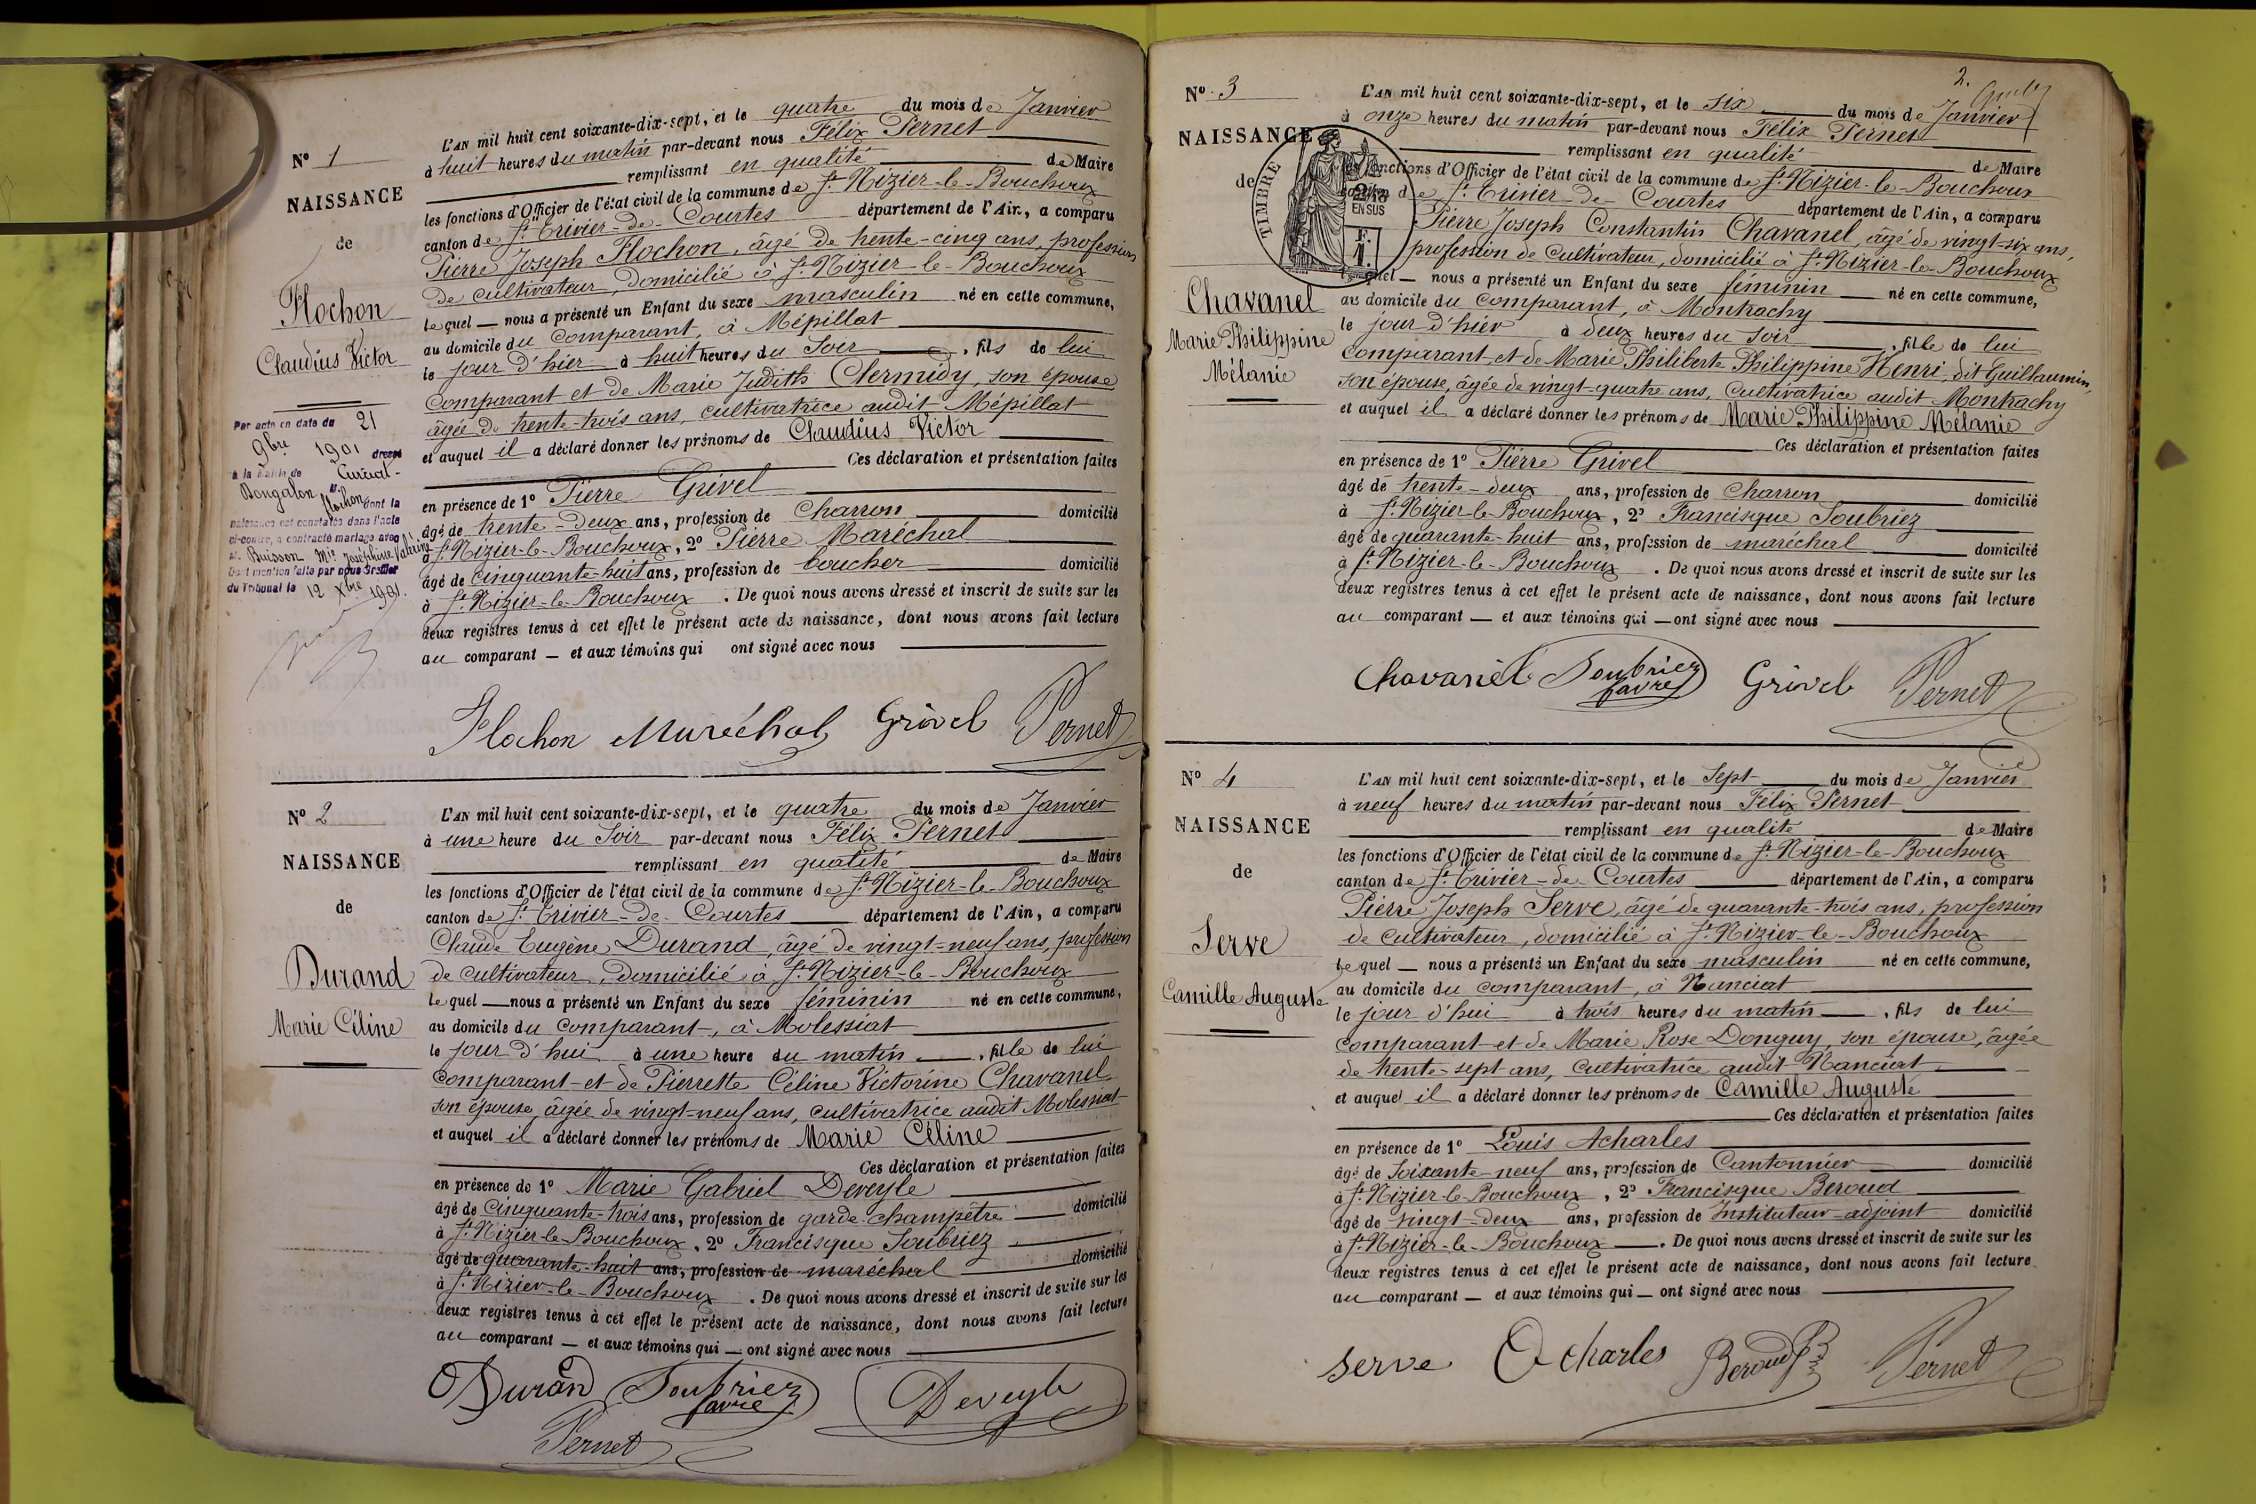 L'AN mil huit cent soixante-dix-sept, et le quatre du mois de Janvier
à huit heures du matin par-devant nous Félix Pernet
remplissant en qualité de Maire
les fonctions d'Officier de l'état civil de la commune de St Nizier-le-Bouchoux
canton de St Trivier-de-Courtes département de l'Ain, a comparu
Pierre Joseph Flochon, âgé de trente-cinq ans, profession
de cultivateur, domicilié à St Nizier-le-Bouchoux
lequel — nous a présenté un Enfant du sexe masculin né en cette commune,
au domicile du comparant, à Mépillat
le jour d'hier à huit heures du Soir, fils de lui
comparant et de Marie Judith Clermidy, son épouse
âgée de trente-trois ans, cultivatrice audit Mépillat
et auquel il a déclaré donner les prénoms de Claudius Victor
Ces déclaration et présentation faites
en présence de 1° Pierre Grivel
âgé de trente-deux ans, profession de Charron domicilié
à St Nizier-le-Bouchoux, 2° Pierre Maréchal
âgé de cinquante-huit ans, profession de boucher domicilié
à St Nizier-le-Bouchoux. De quoi nous avons dressé et inscrit de suite sur les
deux registres tenus à cet effet le présent acte de naissance, dont nous avons fait lecture
au comparant — et aux témoins qui ont signé avec nous
Flochon Maréchal Grivel Pernet
N° 1
NAISSANCE
de
Flochon
Claudius Victor
Par acte en date du 21
9bre 1901 dressé
à la Mairie de Curciat-
Dongalon M.
Flochon dont la
naissance est constatée dans l'acte
ci-contre, a contracté mariage avec
M. Buisson Mie Joséphine Valérine
Dont mention faite par nous Greffier
du Tribunal le 12 Xbre 1901.
N° 2
NAISSANCE
de
Durand
Marie Céline
L'AN mil huit cent soixante-dix-sept, et le quatre du mois de Janvier
à une heure du Soir par-devant nous Félix Pernet
remplissant en qualité de Maire
les fonctions d'Officier de l'état civil de la commune de St Nizier-le-Bouchoux
canton de St Trivier-de-Courtes département de l'Ain, a comparu
Claude Eugène Durand, âgé de vingt-neuf ans, profession
de cultivateur, domicilié à St Nizier-le-Bouchoux
lequel — nous a présenté un Enfant du sexe féminin né en cette commune,
au domicile du comparant, à Molessiat
le jour d'hui à une heure du matin, fille de lui
comparant et de Pierrette Céline Victorine Chavanel
son épouse, âgée de vingt-neuf ans, cultivatrice audit Molessiat
et auquel il a déclaré donner les prénoms de Marie Céline
Ces déclaration et présentation faites
en présence de 1° Marie Gabriel Deveyle
âgé de Cinquante-trois ans, profession de garde-champêtre domicilié
à St Nizier-le-Bouchoux, 2° Francisque Soubriez
âgé de quarante-huit ans, profession de maréchal domicilié
à St Nizier-le-Bouchoux. De quoi nous avons dressé et inscrit de suite sur les
deux registres tenus à cet effet le présent acte de naissance, dont nous avons fait lecture
au comparant — et aux témoins qui — ont signé avec nous
Durand Soubriez favre Deveyle
Pernet
2.
N° 3
NAISSANCE
de
Chavanel
Marie Philippine
Mélanie
TIMBRE
2/10
EN SUS
L'AN mil huit cent soixante-dix-sept, et le six du mois de Janvier
à onze heures du matin par-devant nous Félix Pernet
remplissant en qualité de Maire
les fonctions d'Officier de l'état civil de la commune de St Nizier-le-Bouchoux
canton de St Trivier-de-Courtes département de l'Ain, a comparu
Pierre Joseph Constantin Chavanel, âgé de vingt-six ans,
profession de cultivateur, domicilié à St Nizier-le-Bouchoux
lequel — nous a présenté un Enfant du sexe féminin né en cette commune,
au domicile du comparant, à Montrachy
le jour d'hier à deux heures du soir, fille de lui
comparant et de Marie Philiberte Philippine Henri, dit Guillaumin,
son épouse, âgée de vingt-quatre ans, Cultivatrice audit Montrachy
et auquel il a déclaré donner les prénoms de Marie Philippine Mélanie
Ces déclaration et présentation faites
en présence de 1° Pierre Grivel
âgé de trente-deux ans, profession de Charron domicilié
à St Nizier-le-Bouchoux, 2° Francisque Soubriez
âgé de quarante-huit ans, profession de maréchal domicilié
à St Nizier-le-Bouchoux. De quoi nous avons dressé et inscrit de suite sur les
deux registres tenus à cet effet le présent acte de naissance, dont nous avons fait lecture
au comparant — et aux témoins qui — ont signé avec nous
Chavanel Soubriez favre Grivel Pernet
N° 4
NAISSANCE
de
Serve
Camille Auguste
L'AN mil huit cent soixante-dix-sept, et le Sept du mois de Janvier
à neuf heures du matin par-devant nous Félix Pernet
remplissant en qualité de Maire
les fonctions d'Officier de l'état civil de la commune de St Nizier-le-Bouchoux
canton de St Trivier-de-Courtes département de l'Ain, a comparu
Pierre Joseph Serve, âgé de quarante-trois ans, profession
de cultivateur, domicilié à St Nizier-le-Bouchoux
lequel — nous a présenté un Enfant du sexe masculin né en cette commune,
au domicile du comparant, à Nanciat
le jour d'hui à trois heures du matin, fils de lui
comparant et de Marie Rose Donguy, son épouse, âgée
de trente-sept ans, Cultivatrice audit Nanciat
et auquel il a déclaré donner les prénoms de Camille Auguste
Ces déclaration et présentation faites
en présence de 1° Louis Acharles
âgé de Soixante-neuf ans, profession de Cantonnier domicilié
à St Nizier-le-Bouchoux, 2° Francisque Beroud
âgé de vingt-deux ans, profession de Instituteur-adjoint domicilié
à St Nizier-le-Bouchoux. De quoi nous avons dressé et inscrit de suite sur les
deux registres tenus à cet effet le présent acte de naissance, dont nous avons fait lecture
au comparant — et aux témoins qui — ont signé avec nous
Serve Acharles Beroud Pernet